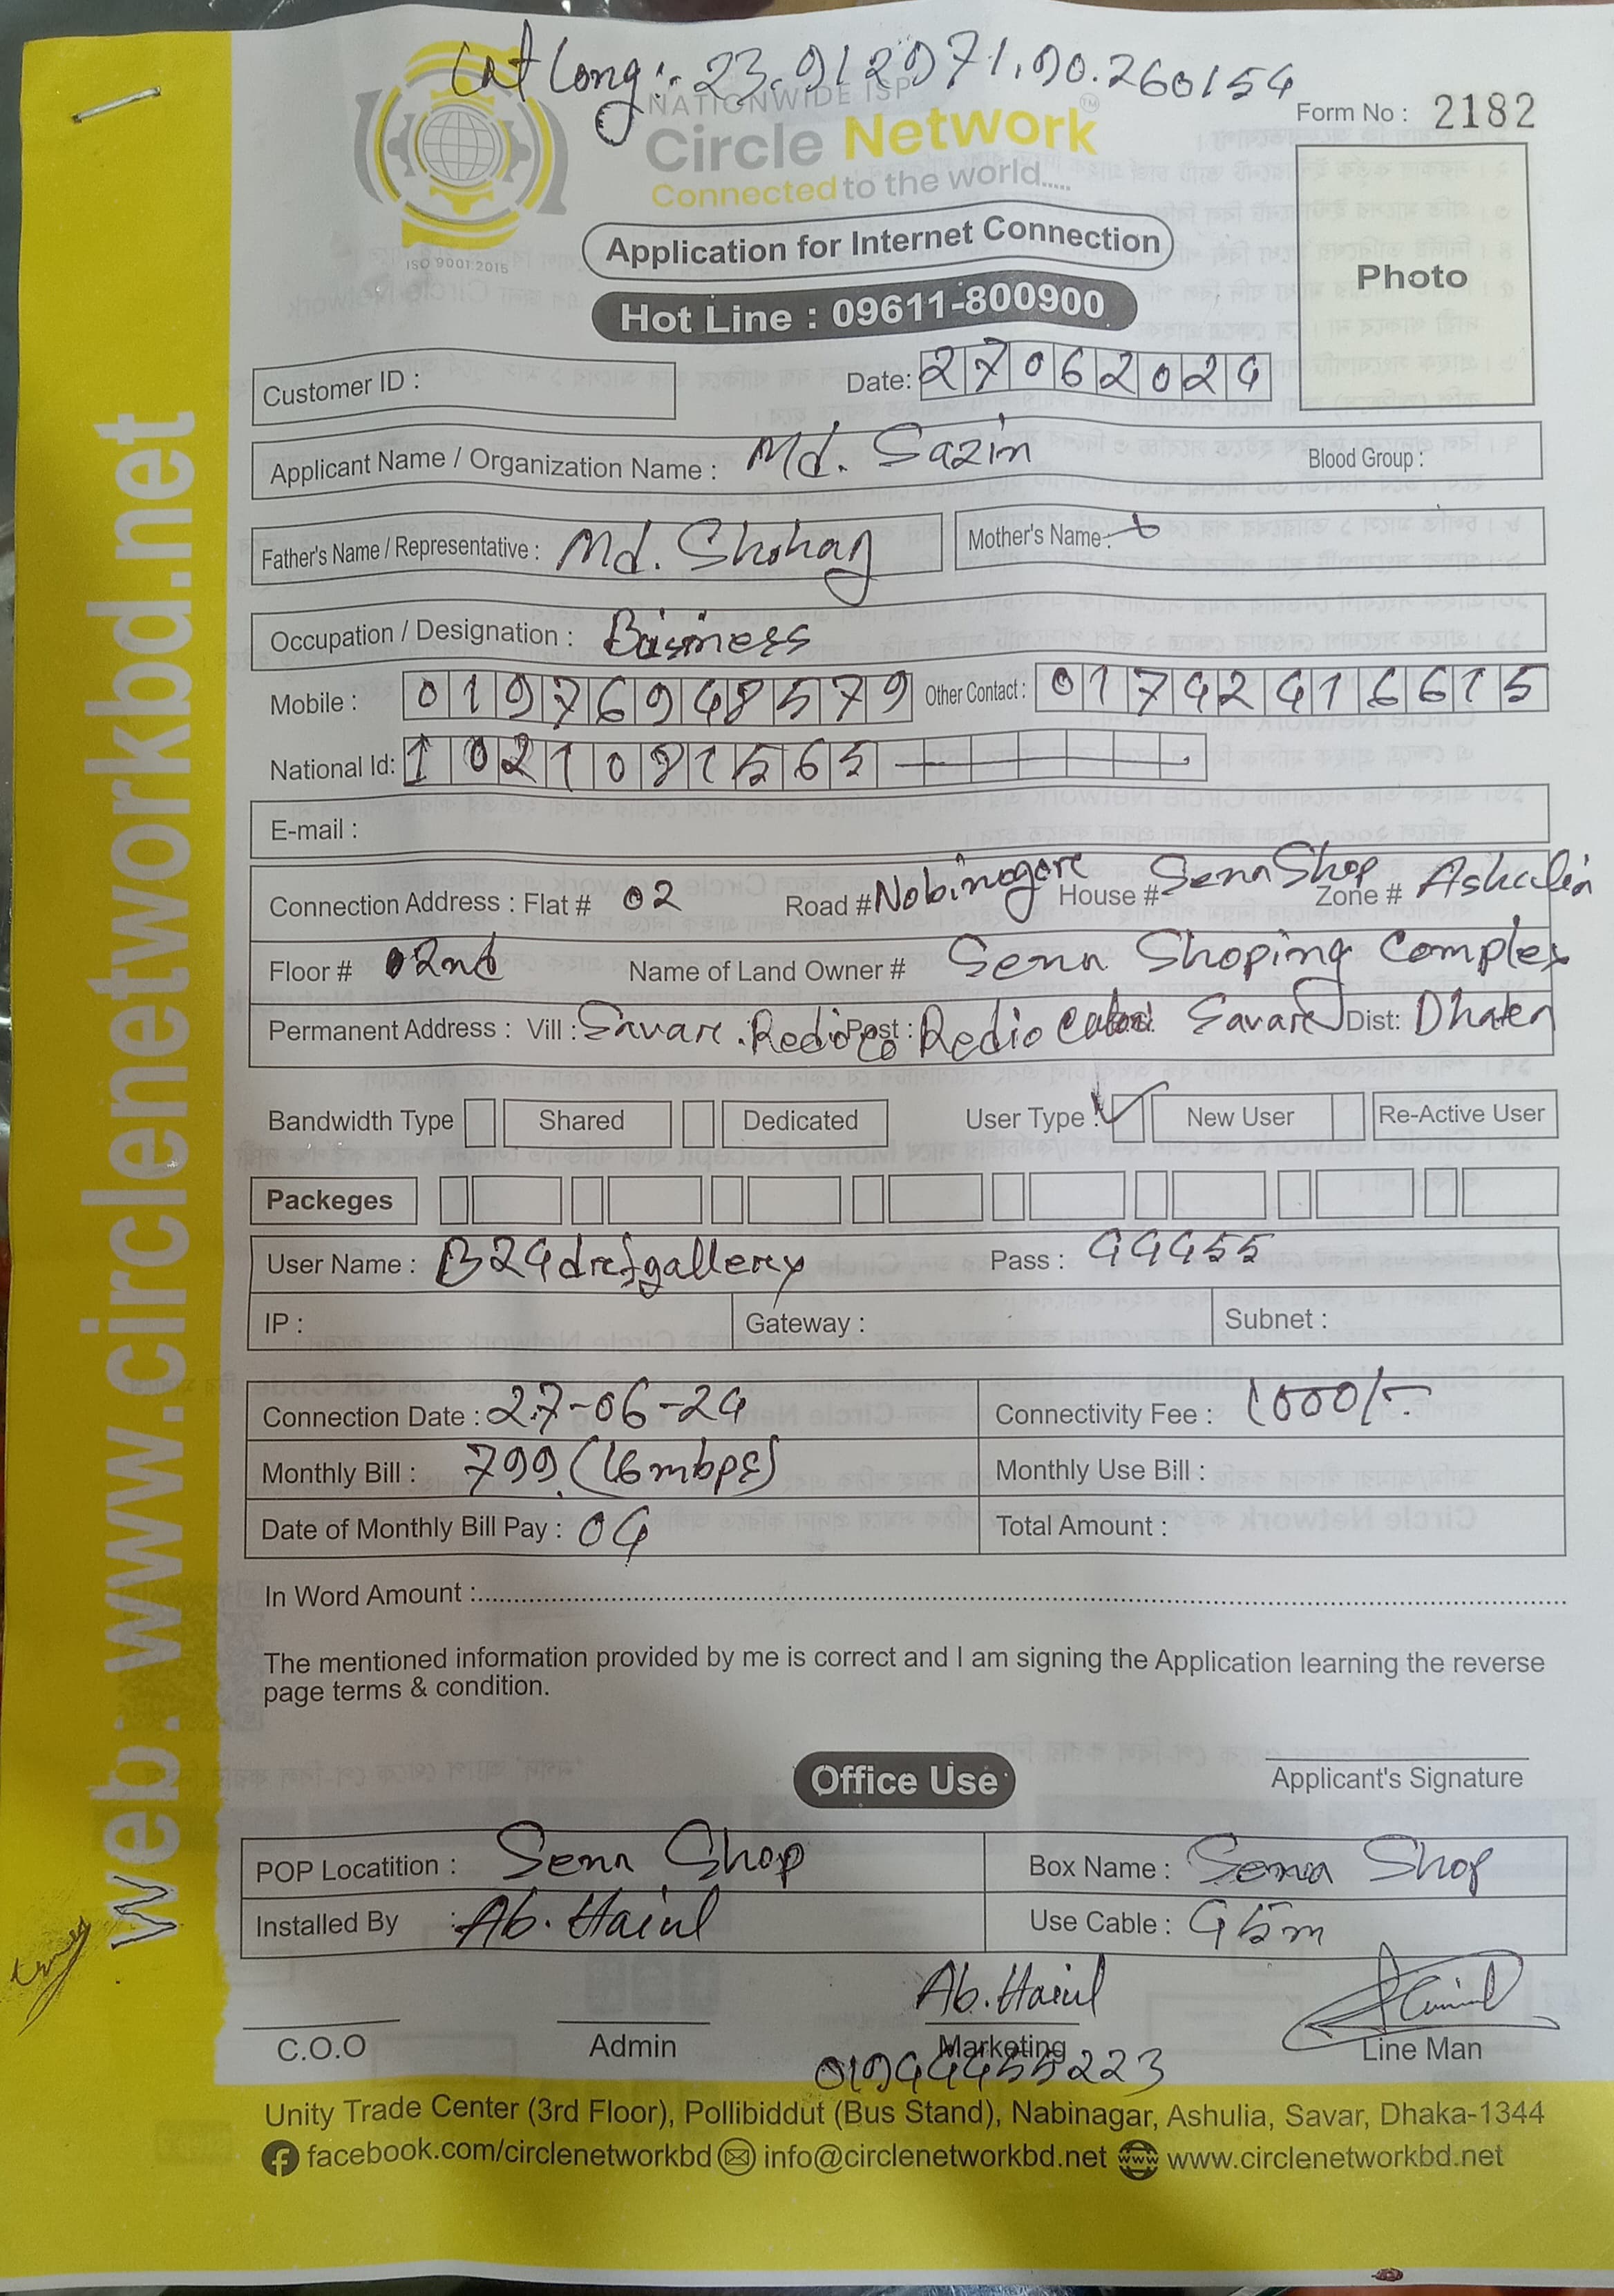 Lat Long:- 23.912971,90.260154
NATIONWIDE ISP
Circle Network™
Connected to the world.....
ISO 9001:2015
Form No : 2182
Application for Internet Connection
Hot Line : 09611-800900
Photo
Customer ID :
Date: 27062024
Applicant Name / Organization Name : Md. Sazin Blood Group :
Father's Name / Representative : Md. Shohag Mother's Name :
Occupation / Designation : Business
Mobile : 01976948579 Other Contact : 01742416615
National Id: 1021081565
E-mail :
Connection Address : Flat # 02 Road # Nobinogore House # Sena Shop Zone # Ashulia
Floor # 02nd Name of Land Owner # Sena Shoping Complex
Permanent Address : Vill : Savare. Redio Co Post : Redio Savare Dist: Dhaka
Bandwidth Type Shared Dedicated User Type : New User Re-Active User
Packeges
User Name : B24drefgallery Pass : 44455
IP : Gateway : Subnet :
Connection Date : 27-06-24 Connectivity Fee : 1000/-
Monthly Bill : 799 (16mbps) Monthly Use Bill :
Date of Monthly Bill Pay : 04 Total Amount :
In Word Amount :
The mentioned information provided by me is correct and I am signing the Application learning the reverse
page terms & condition.
Office Use
Applicant's Signature
POP Locatition : Sena Shop Box Name : Sena Shop
Installed By : Ab. Hainl Use Cable : 45m
Ab. Hainl
C.O.O Admin Marketing Line Man
01944455223
Unity Trade Center (3rd Floor), Pollibiddut (Bus Stand), Nabinagar, Ashulia, Savar, Dhaka-1344
facebook.com/circlenetworkbd info@circlenetworkbd.net www.circlenetworkbd.net
web: www.circlenetworkbd.net